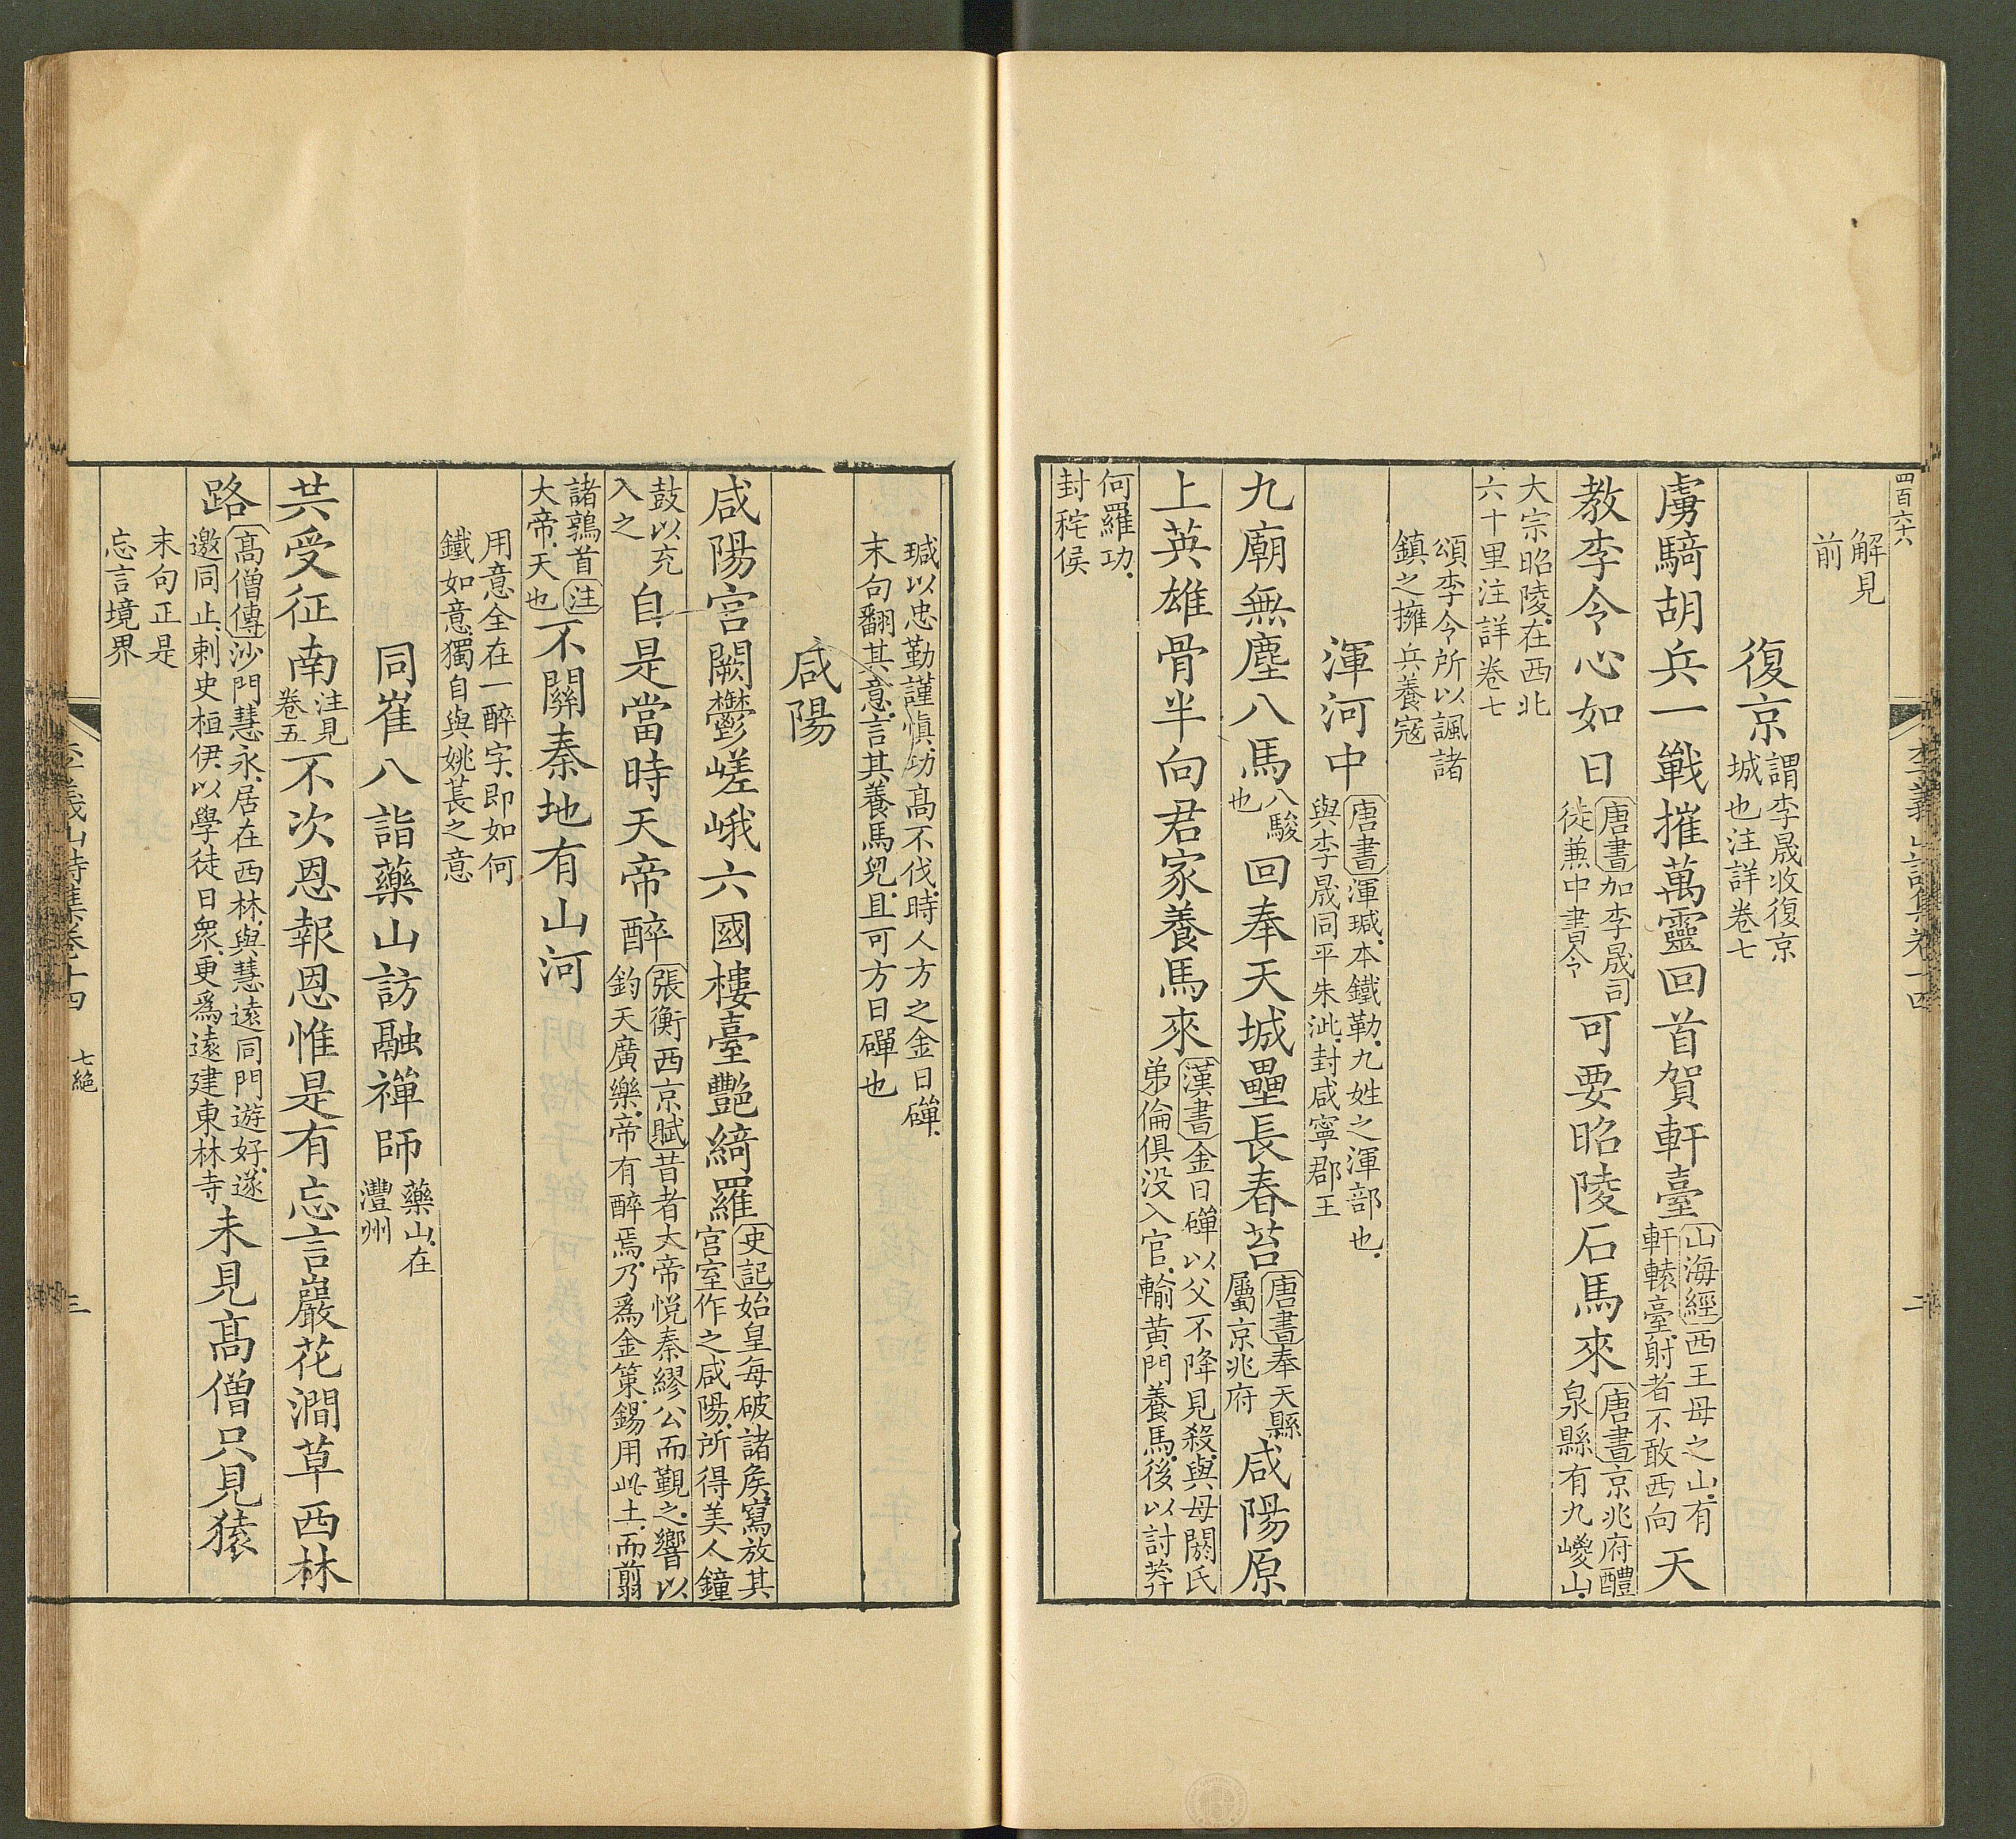 四百六十六
李義山詩集卷十四
二
解見
前
復京謂李晟收復京
城也注詳卷七
虜騎胡兵一戰摧萬靈回首賀軒臺山海經西王母之山有
軒轅臺射者不敢西向天
教李令心如日唐書加李晟司
徒兼中書令可要昭陵石馬來唐書京兆府醴
泉縣有九嵕山
大宗昭陵在西北
六十里注詳卷七
頌李令所以諷諸
鎮之擁兵養寇
渾河中唐書渾瑊本鐵勒九姓之渾部也
與李晟同平朱泚封咸寧郡王
九廟無塵八馬八駿
也回奉天城壘長春苔唐書奉天縣
屬京兆府咸陽原
上英雄骨半向君家養馬來漢書金日磾以父不降見殺與母閼氏
弟倫俱没入官輸黄門養馬後以討莽
何羅功
封秺侯
瑊以忠勤謹慎功髙不伐時人方之金日磾
末句翻其意言其養馬兒且可方日磾也
咸陽
咸陽宮闕鬱嵯峨六國樓臺艷綺羅史記始皇每破諸侯寫放其
宮室作之咸陽所得美人鐘
鼓以充
入之自是當時天帝醉張衡西京賦昔者大帝悦秦繆公而覲之響以
鈞天廣樂帝有醉焉乃爲金策錫用此土而翦
諸鶉首注
大帝天也不關秦地有山河
用意全在一醉字即如何
鐵如意獨自與姚萇之意
同崔八詣藥山訪融禪師藥山在
灃州
共受征南注見
卷五不次恩報恩惟是有忘言巖花澗草西林
路髙僧傳沙門慧永居在西林與慧遠同門遊好遂
邀同止刺史桓伊以學徒日衆更爲遠建東林寺未見髙僧只見猿
末句正是
忘言境界
李義山詩集卷十四
七絕
三